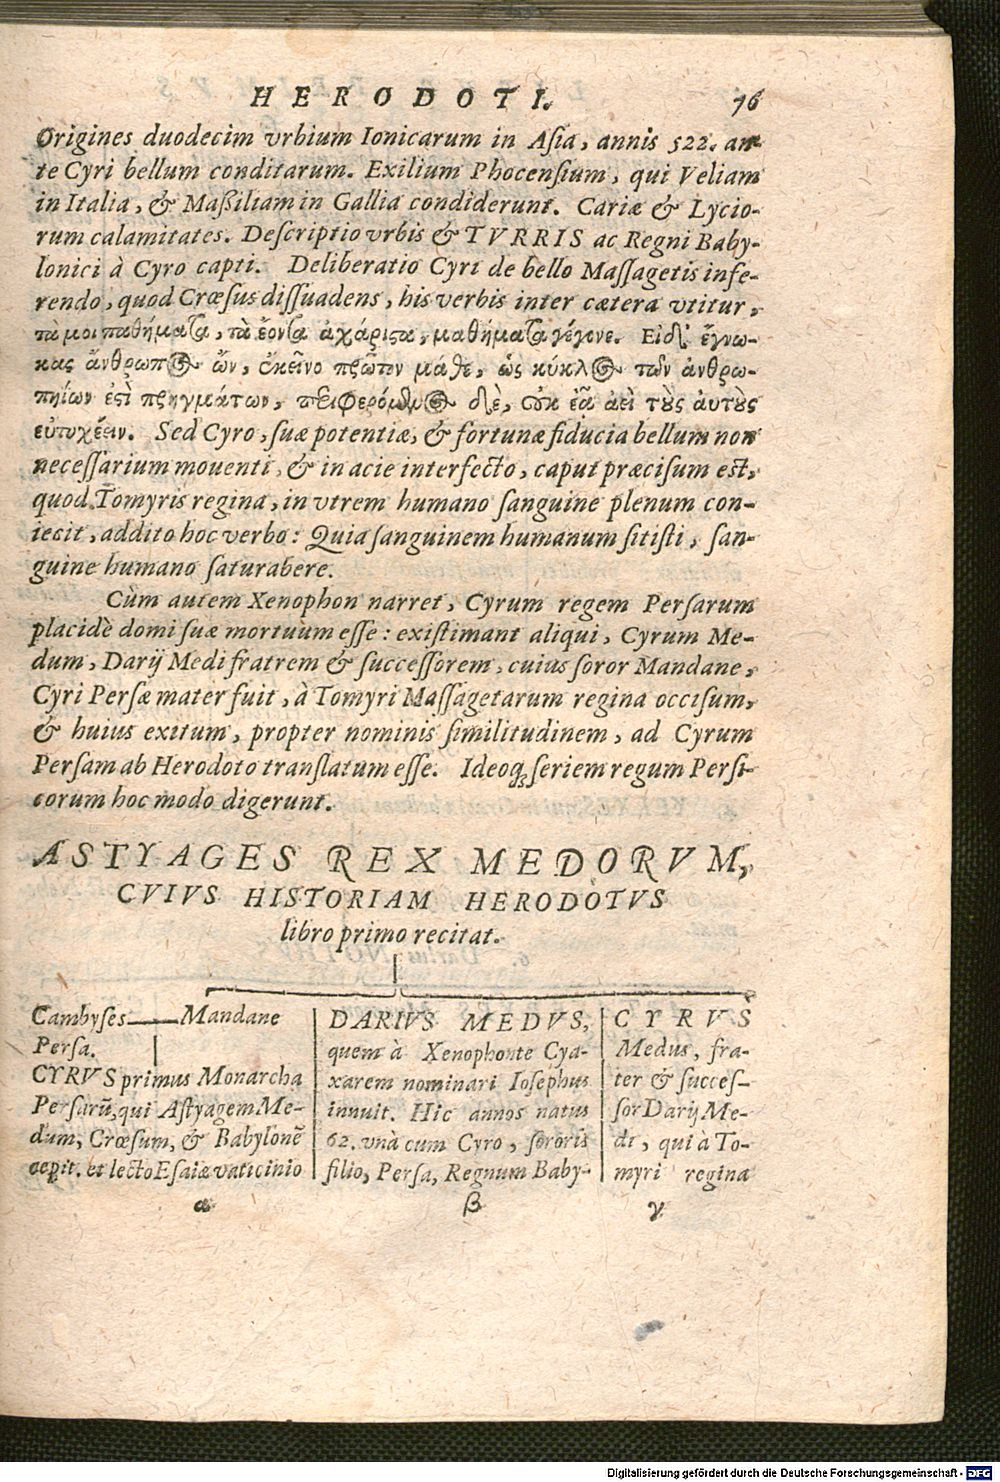 HERODOTI. 76
Origines duodecim vrbium Ionicarum in Asia, annis 522. an-
te Cyri bellum conditarum. Exilium Phocensium, qui Veliam
in Italia, & Maßiliam in Gallia condiderunt. Cariæ & Lycio-
rum calamitates. Descriptio vrbis & TVRRIS ac Regni Baby-
lonici à Cyro capti. Deliberatio Cyri de bello Massagetis infe-
rendo, quod Crœsus dissuadens, his verbis inter cætera vtitur,
τα μοι παθήματα, τὰ ἐόντα ἀχάριςα, μαθήματα γέγονε. Εἰ δ' ἔγνω-
κας ἄνθρωπος ὢν, ἐκεῖνο πρῶτον μάθε, ὡς κύκλος τῶν ἀνθρω-
πηίων ἐςὶ πρηγμάτων, περιφερόμενος δὲ, οὐκ ἐᾷ ἀεὶ τοὺς αὐτοὺς
εὐτυχέειν. Sed Cyro, suæ potentiæ, & fortunæ fiducia bellum non
necessarium mouenti, & in acie interfecto, caput præcisum est,
quod Tomyris regina, in vtrem humano sanguine plenum con-
iecit, addito hoc verbo: Quia sanguinem humanum sitisti, san-
guine humano saturabere.
Cùm autem Xenophon narret, Cyrum regem Persarum
placidè domi suæ mortuum esse: existimant aliqui, Cyrum Me-
dum, Darij Medi fratrem & successorem, cuius soror Mandane,
Cyri Persæ mater fuit, à Tomyri Massagetarum regina occisum,
& huius exitum, propter nominis similitudinem, ad Cyrum
Persam ab Herodoto translatum esse. Ideoq; seriem regum Persi-
corum hoc modo digerunt.
ASTYAGES REX MEDORVM,
CVIVS HISTORIAM HERODOTVS
libro primo recitat.
Cambyses Mandane
Persa.
CYRVS primus Monarcha
Persarū, qui Astyagem Me-
dum, Crœsum, & Babylonē
cepit. et lecto Esaiæ vaticinio
α
DARIVS MEDVS,
quem à Xenophonte Cya-
xarem nominari Iosephus
innuit. Hic annos natus
62. vnà cum Cyro, sororis
filio, Persa, Regnum Baby-
β
CYRVS
Medus, fra-
ter & succes-
sor Darij Me-
di, qui à To-
myri regina
γ
Digitalisierung gefördert durch die Deutsche Forschungsgemeinschaft - DFG